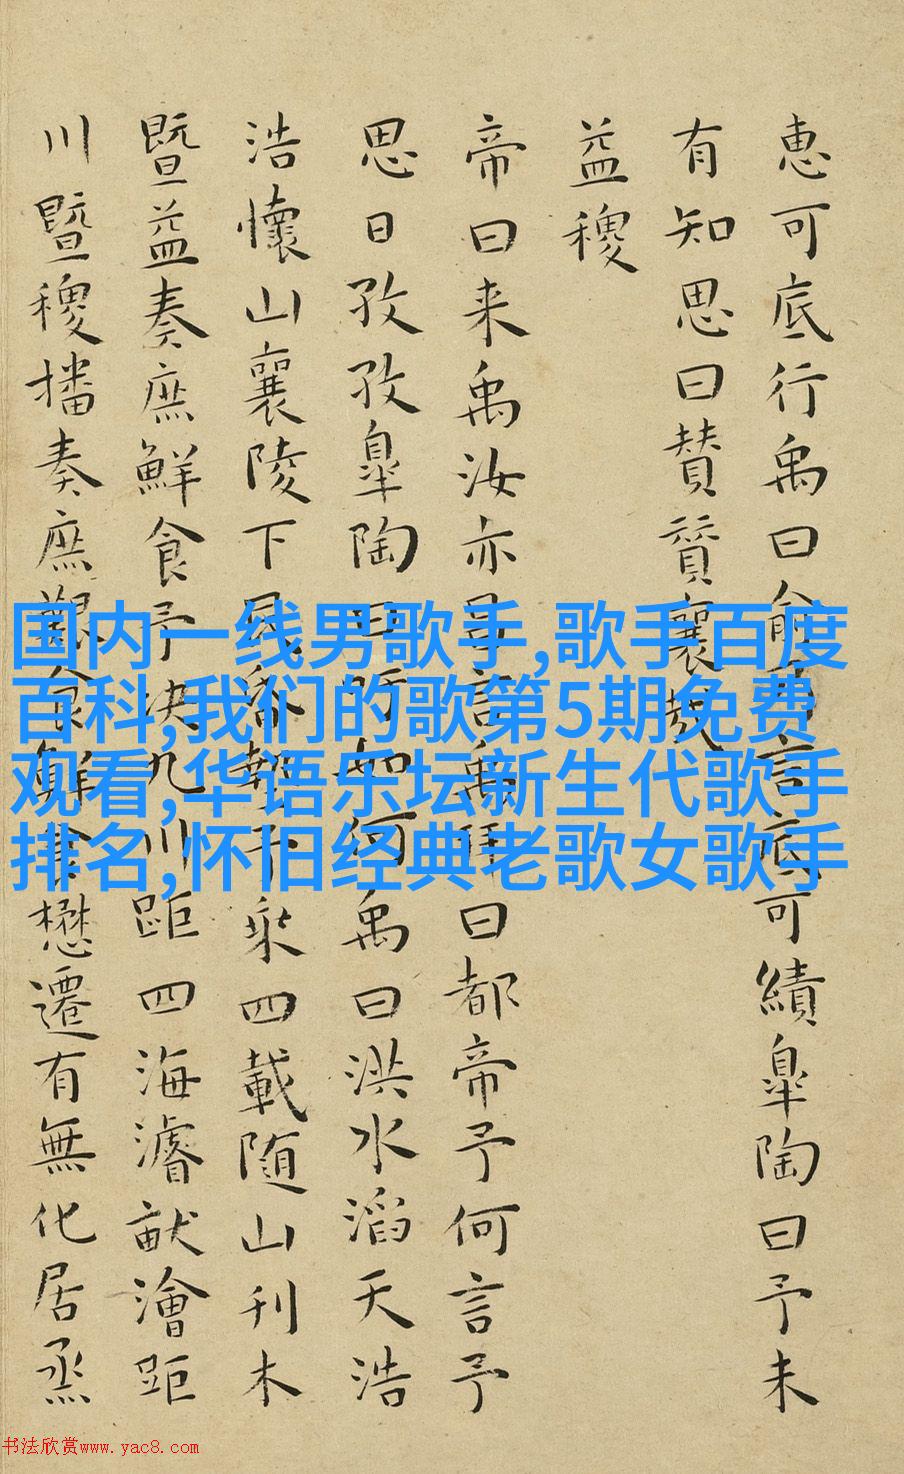 惠可底行禹曰俞乃言底可績皐陶曰予未
有知思曰賛賛襄哉
益稷
帝曰来禹汝亦昌言禹拜曰都帝予何言予
思日孜孜皐陶曰吁如何禹曰洪水滔天浩
浩懷山襄陵下民昏墊予乗四載随山刊木
暨益奏庶鮮食予决九川距四海濬畎澮距
川暨稷播奏庶艱食鮮食懋遷有無化居烝
国内一线男歌手,歌手百度
百科,我们的歌第5期免费
观看,华语乐坛新生代歌手
排名,怀旧经典老歌女歌手
书法欣赏www.yac8.com